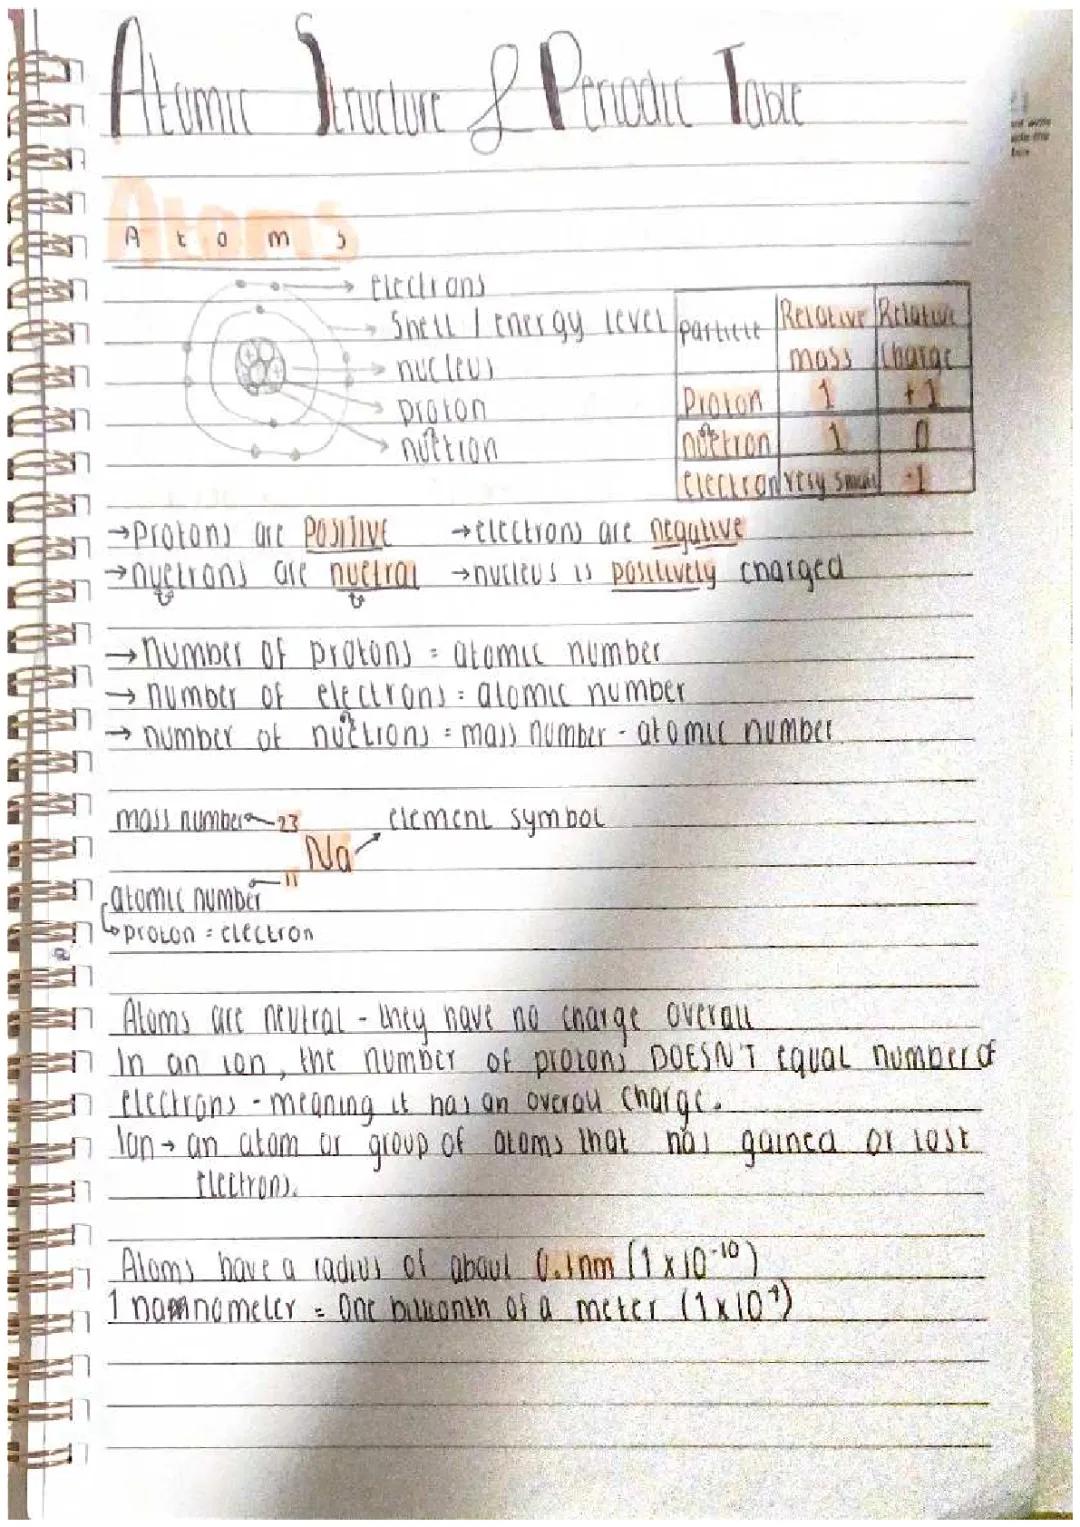 Atomic Structure & Periodic Table
Atoms
Atoms
electrons
Shell / energy level
nucleus
proton
nuetron
Particle Relative mass Relative charge
Proton 1 +1
nuetron 1 0
electron very small -1
→Protons are Positive →electrons are negative
→nuetrons are nuetral →nucleus is positively charged
→number of protons = atomic number
→number of electrons = atomic number
→number of nuetrons = mass number - atomic number
mass number 23 element symbol
Na
atomic number 11
↳proton = electron
Atoms are neutral - they have no charge overall
In an ion, the number of protons DOESN'T equal number of
electrons - meaning it has an overall charge.
Ion → an atom or group of atoms that has gained or lost
electrons.
Atoms have a radius of about 0.1nm (1 x 10⁻¹⁰)
1 nanometer = One billionth of a meter